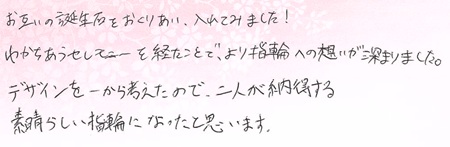 お互いの誕生石をおくりあい、入れてみました！
わかちあうセレモニーを経たことで、より指輪への想いが深まりました。
デザインを一から考えたので、二人が納得する
素晴らしい指輪になったと思います。